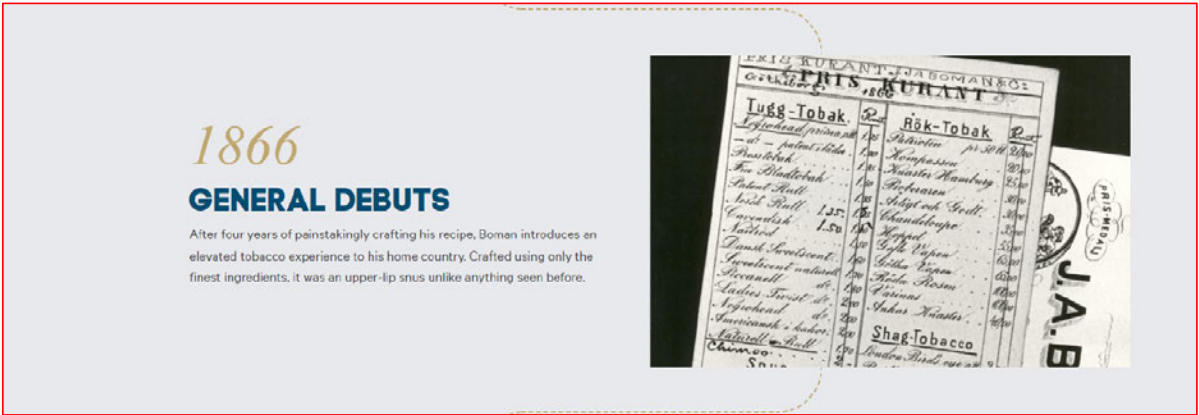 1866
GENERAL DEBUTS
After four years of painstakingly crafting his recipe, Boman introduces an
elevated tobacco experience to his home country. Crafted using only the
finest ingredients, it was an upper-lip snus unlike anything seen before.
PRIS KURANT J.A.BOMAN & C:
Götheborg 1866
PRIS KURANT
Tugg-Tobak.
Negrohead prima
do — patent i lådor
Presstobak
Fin Bladtobak
Patent Rull
Norsk Rull 1.35.
Cavendish 1.50
Nailrod
Dansk Sweetscent
Sweetscent naturell
Piccanell do.
Ladies Twist do. 2,00
Negrohead do. 2,00
Americansk i kakor. 2,00
Naturell Rull
Chinco
Rök-Tobak
Patrioten pr 50 ℔ 20,00
Kompassen
Knaster Hamburg 25,00
Roberaren
Artigt och Godt
Chandeloupe
Hoppet
Gefle Vapen
Götha Vapen
Röda Rosen
Varinas
Ankar Knaster
Shag-Tobacco
London Birds eye
PRIS-MEDALJ
J.A.B